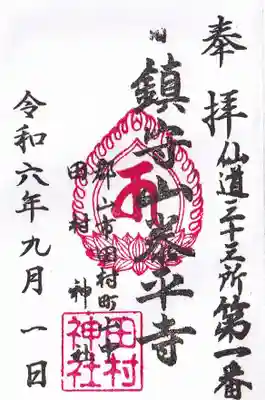 奉拝
仙道三十三所第一番
旧
鎮守山泰平寺
郡山市田村町山中
田村神社
令和六年九月一日
田村
神社